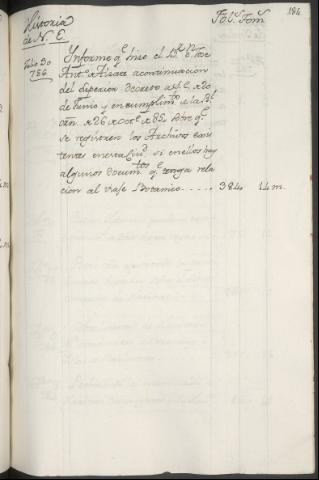 Historia
de N. E.
Fol.s Tom.s
194
Julio 30
786
Informe q.e hizo el D.r D.n Jose
Ant.o Alzate a continuacion
del Superior Decreto de 20
de Junio y en cumplim.to de la R.l
orn. de 26 Oct.e de 85 sobre q.e
se registren los Archivos exis
tentes en esta Ciu.d si en ellos hay
algunos Docum.tos q.e tenga rela
cion al viaje Botanico
384 14 m.